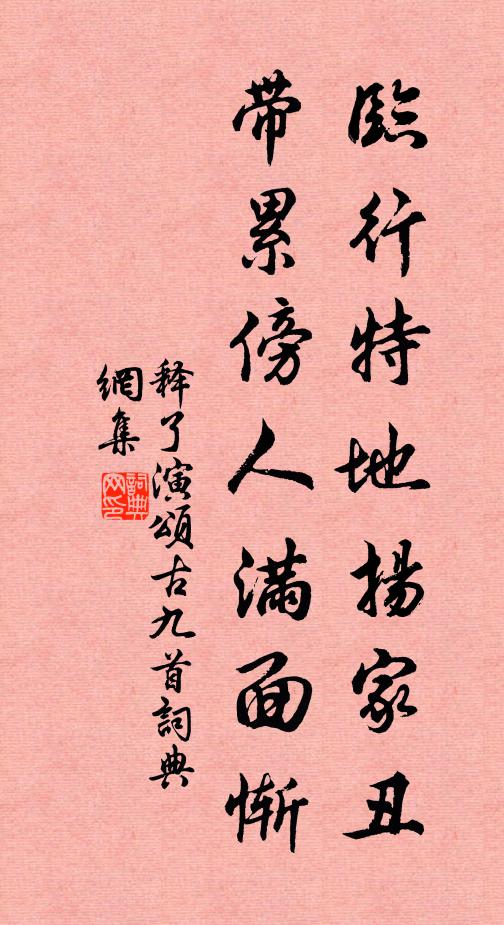 臨行特地揚家丑
带累傍人满面慚
释了演頌古九首詞典
網集
詞典网印